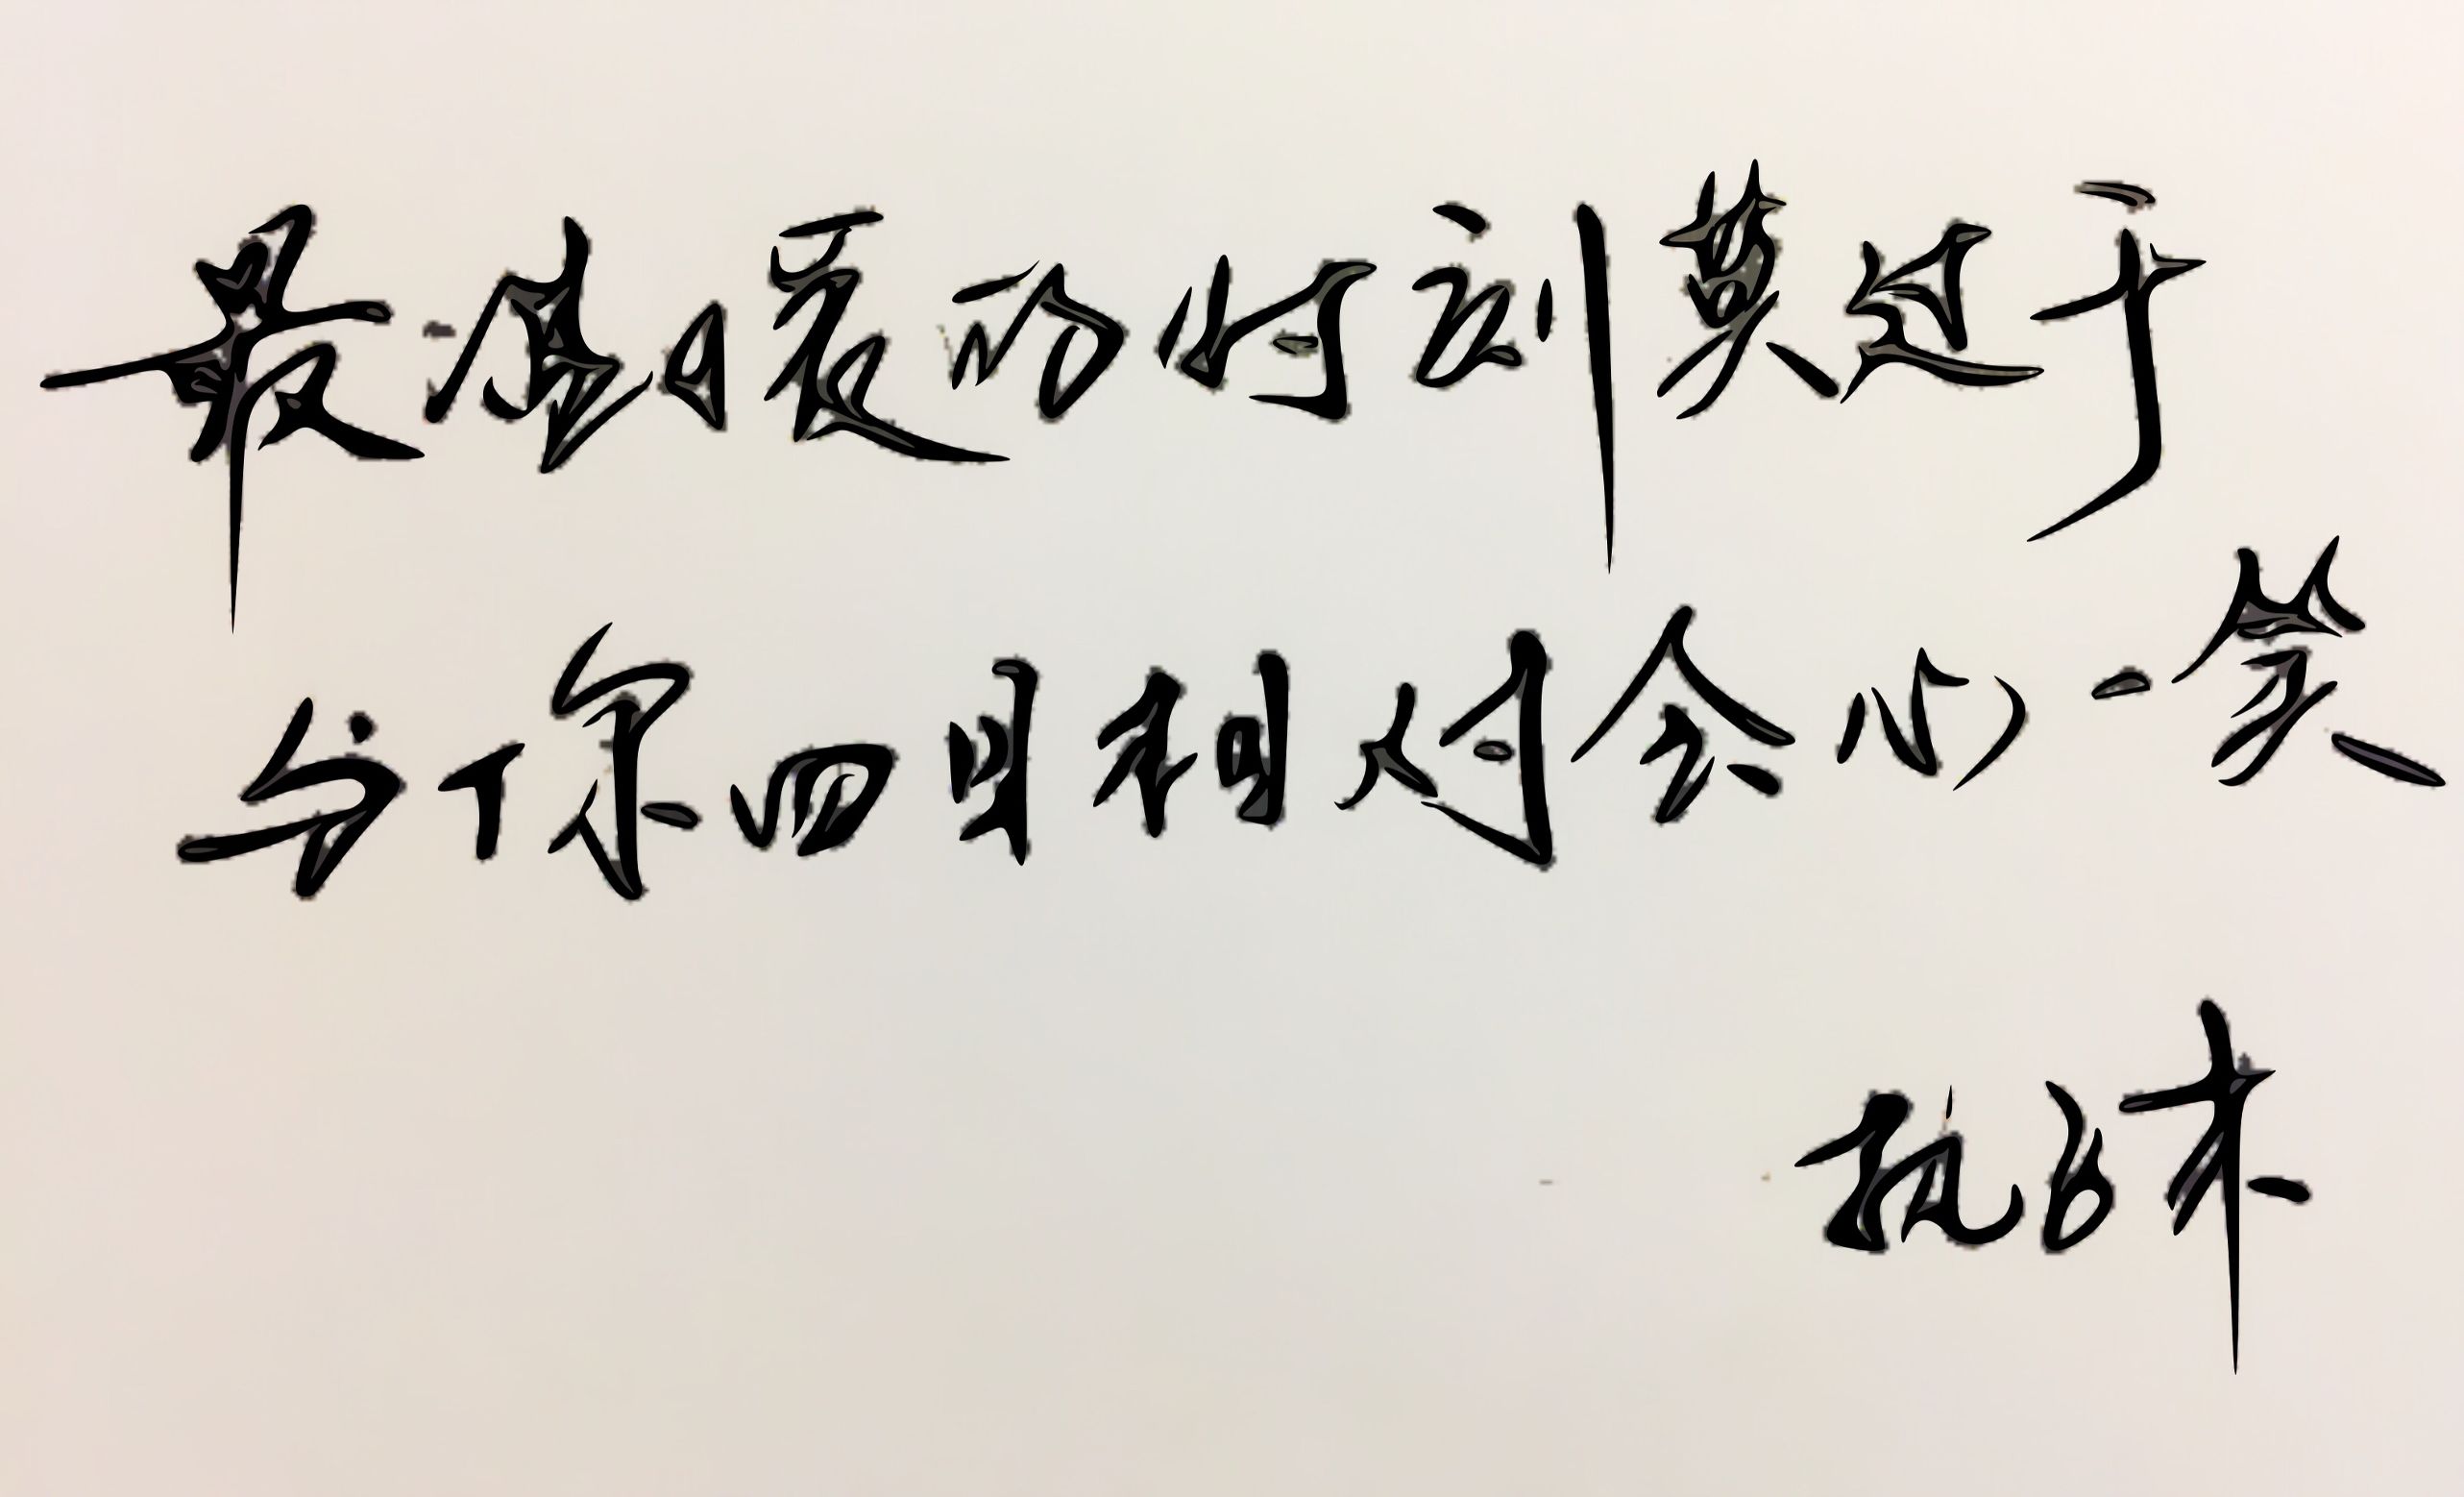 最温暖的时刻莫过于
与你四目相对会心一笑